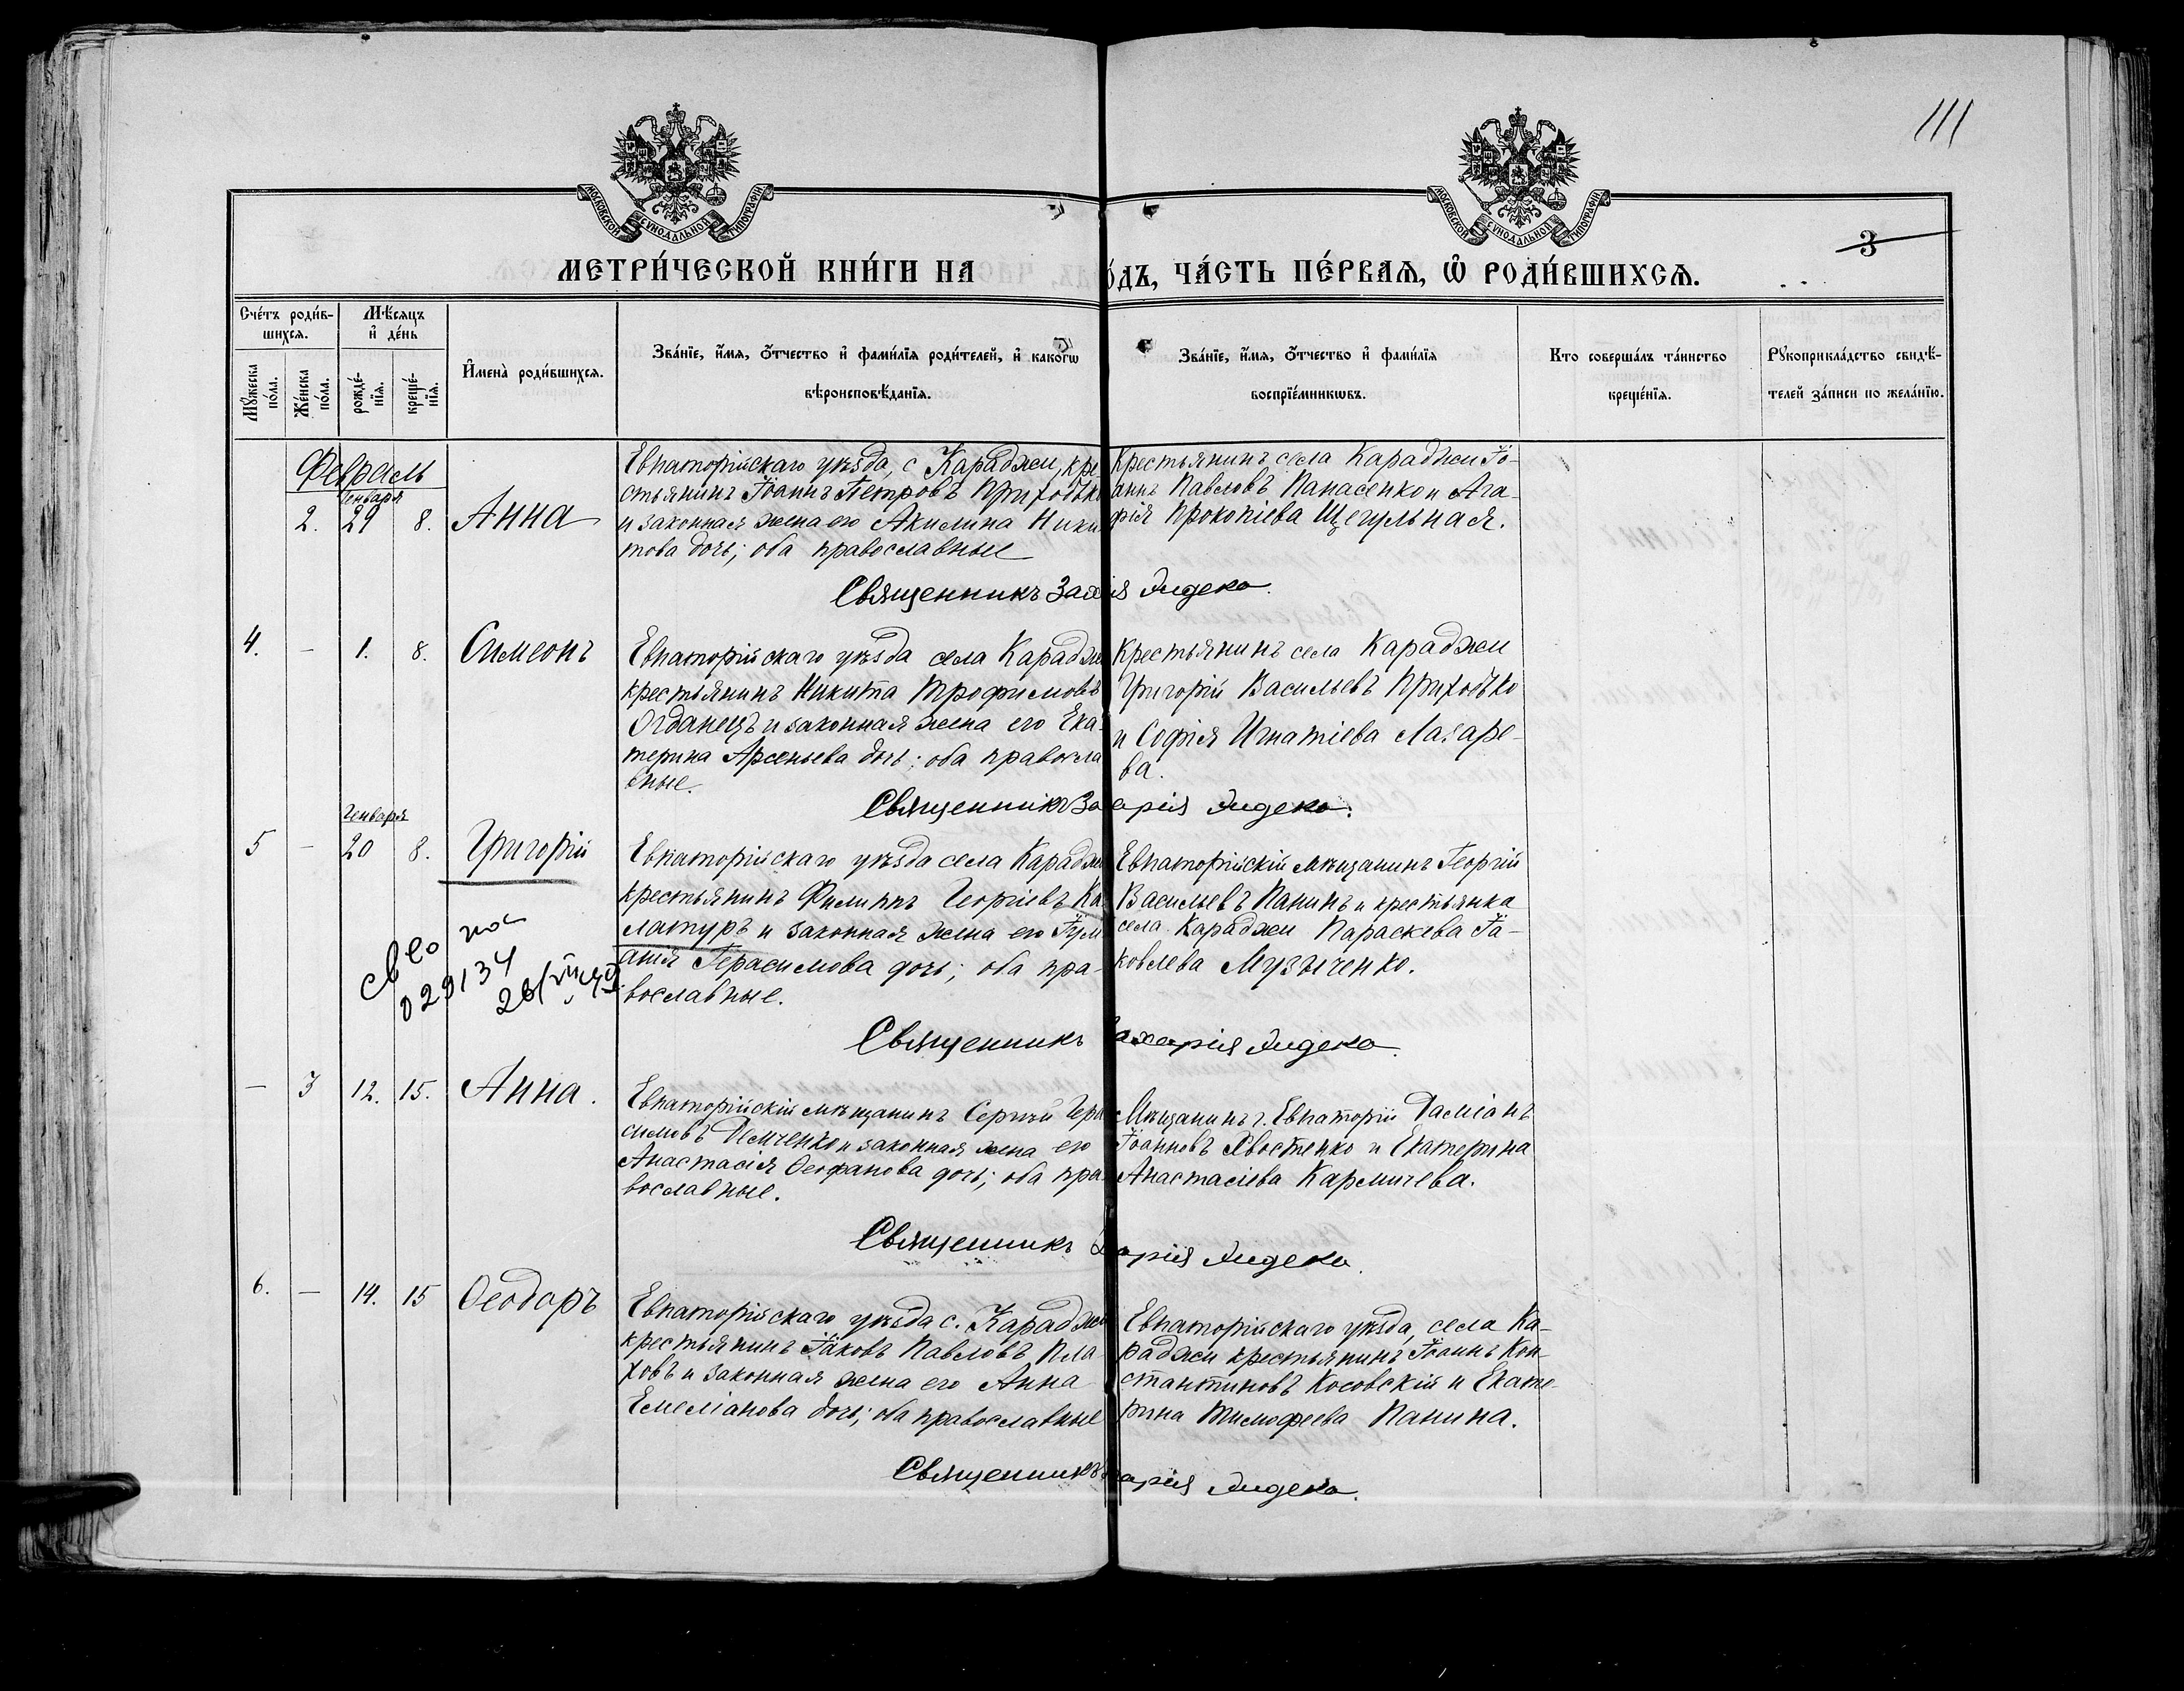 111
МОСКОВСКОЙ СѴНОДАЛЬНОЙ ТИПОГРАФІИ
МОСКОВСКОЙ СѴНОДАЛЬНОЙ ТИПОГРАФІИ
3
МЕТРИ́ЧЕСКОЙ КНИ́ГИ НА о́дъ, ЧА́СТЬ ПЕ́РВАѦ, Ѡ҆ РОДИ́ВШИХСѦ.
Сче́тъ роди́в-
шихсѧ.
Мѣ́сѧцъ
и҆ де́нь
Мꙋ́жеска
по́ла.
Же́нска
по́ла.
рожде́-
нїѧ.
креще́-
нїѧ.
И҆мена̀ роди́вшихсѧ.
Зва́нїе, и҆́мѧ, ѻ҆́тчество и҆ фами́лїѧ роди́телей, и҆ како́гѡ
вѣроисповѣ́данїѧ.
Зва́нїе, и҆́мѧ, ѻ҆́тчество и҆ фами́лїѧ
воспрїе́мникѡвъ.
Кто соверша́лъ та́инство
креще́нїѧ.
Рꙋкоприкла́дство свидѣ́-
телей за́писи по жела́нїю.
Февраль
Генваря
2. 29 8. Анна
Евпаторійскаго уѣзда, с Караджи, кре
стьянинъ Іоаннъ Петровъ Приходько
и законная жена его Акилина Ники
това дочь; оба православные
Крестьянинъ села Караджи Іо-
аннъ Павловъ Панасенко и Ага-
фія Прокопіева Щегульная.
Священникъ Зах ія
4. – 1. 8. Симеонъ
Евпаторійскаго уѣзда села Караджи
крестьянинъ Никита Трофимовъ
Огданецъ и законная жена его Ека-
терина Арсеньева дочь; оба правосла
вные.
Крестьянинъ села Караджи
Григорій Васильевъ Приходько
и Софія Игнатіева Лазаре-
ва.
Священникъ За арія
Генваря
5 – 20 8. Григорій
Евпаторійскаго уѣзда села Караджи
крестьянинъ Филиппъ Георгіевъ Ка
латуръ и законная жена его Іули
анія Герасимова дочь; оба пра-
вославные.
Евпаторійскій мѣщанинъ Георгій
Васильевъ Панинъ и крестьянка
села Караджи Параскева Іа-
ковлева Музыченко.
029134
Священникъ Захарія
– 3 12. 15. Анна.
Евпаторійскій мѣщанинъ Сергѣй Гера
симовъ Демченко и законная жена его
Анастасія Ѳеофанова дочь; оба пра
вославные.
Мѣщанинъ г. Евпаторіи Даміанъ
Іоанновъ Хвостенко и Екатерина
Анастасіева Кармичева.
Священникъ арія
6. – 14. 15 Ѳеодоръ
Евпаторійскаго уѣзда с. Караджи
крестьянинъ Іаковъ Павловъ Пла-
ховъ и законная жена его Анна
Емеліанова дочь; оба православные
Евпаторійскаго уѣзда, села Ка-
раджи крестьянинъ Іоаннъ Кон-
стантиновъ Косовскій и Екате-
рина Тимофеева Панина.
Священникъ арія